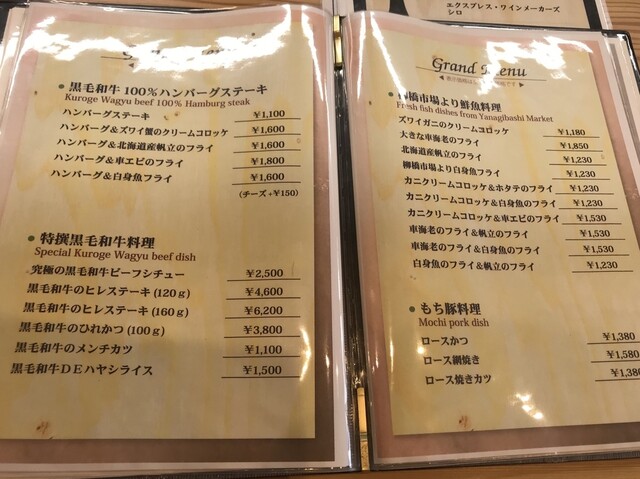 エクスプレス・ワインメーカーズ
シロ
黒毛和牛 100%ハンバーグステーキ
Kuroge Wagyu beef 100% Hamburg steak
ハンバーグステーキ ¥1,100
ハンバーグ＆ズワイ蟹のクリームコロッケ ¥1,600
ハンバーグ＆北海道産帆立のフライ ¥1,600
ハンバーグ＆車エビのフライ ¥1,800
ハンバーグ＆白身魚フライ ¥1,600
(チーズ+¥150)
特撰黒毛和牛料理
Special Kuroge Wagyu beef dish
究極の黒毛和牛ビーフシチュー ¥2,500
黒毛和牛のヒレステーキ(120g) ¥4,600
黒毛和牛のヒレステーキ(160g) ¥6,200
黒毛和牛のひれかつ(100g) ¥3,800
黒毛和牛のメンチカツ ¥1,100
黒毛和牛DEハヤシライス ¥1,500
Grand Menu
柳橋市場より鮮魚料理
Fresh fish dishes from Yanagibashi Market
ズワイガニのクリームコロッケ ¥1,180
大きな車海老のフライ ¥1,850
北海道産帆立のフライ ¥1,230
柳橋市場より白身魚フライ ¥1,230
カニクリームコロッケ＆ホタテのフライ ¥1,230
カニクリームコロッケ＆白身魚のフライ ¥1,230
カニクリームコロッケ＆車エビのフライ ¥1,530
車海老のフライ＆帆立のフライ ¥1,530
車海老のフライ＆白身魚のフライ ¥1,530
白身魚のフライ＆帆立のフライ ¥1,230
もち豚料理
Mochi pork dish
ロースかつ ¥1,380
ロース鍋焼き ¥1,580
ロース焼きカツ ¥1,380